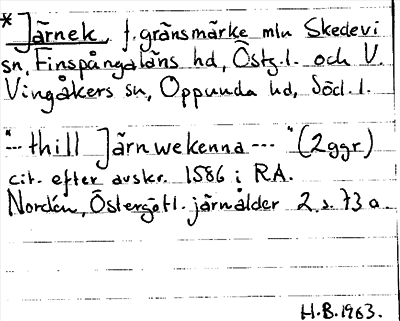 * Järnek, f. gränsmärke mln Skedevi
sn, Finspångaläns hd, Östg.l. och V.
Vingåkers sn, Oppunda hd, Södl.l.
"--- thill Järnwekenna ---" (2ggr)
cit. efter avskr. 1586 i RA.
Nordén, Östergötl. järnålder 2. s. 73 a.
H.B. 1963.